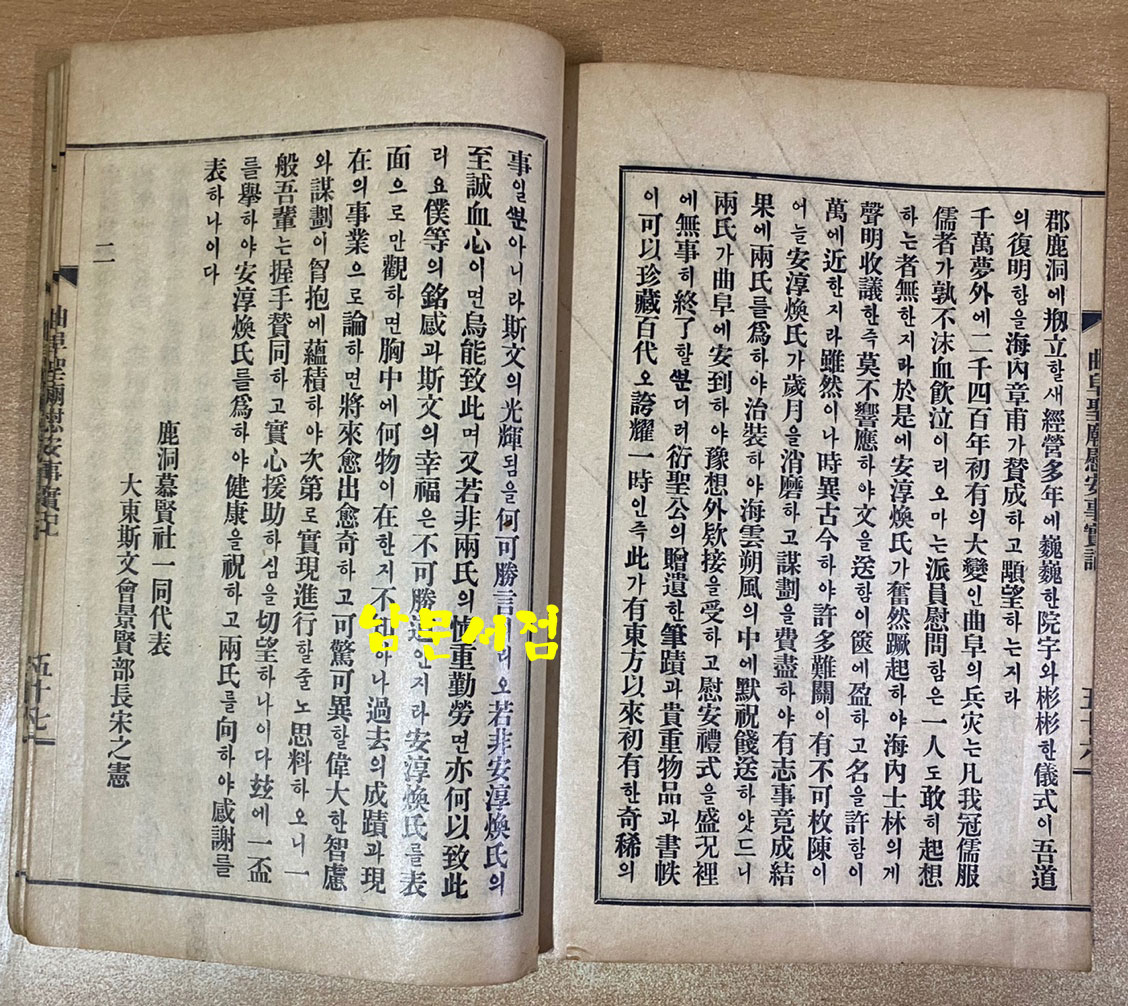 郡鹿洞에刱立할새經營多年에巍巍한院宇와彬彬한儀式이吾道
의復明함을海內章甫가賛成하고顒望하는지라
千萬夢外에二千四百年初有의大變인曲阜의兵灾는凡我冠儒服
儒者가孰不沫血飮泣이리오마는派員慰問함은一人도敢히起想
하는者無한지라於是에安淳煥氏가奮然蹶起하야海內士林의게
聲明收議한즉莫不響應하야文을送함이篋에盈하고名을許함이
萬에近한지라雖然이나時異古今하야許多難關이有不可枚陳이
어늘安淳煥氏가歲月을消磨하고謀劃을費盡하야有志事竟成結
果에兩氏를爲하야治裝하야海雲朔風의中에默祝餞送하얏드니
兩氏가曲阜에安到하야豫想外欵接을受하고慰安禮式을盛况裡
에無事히終了할ᄲᅮᆫ더러衍聖公의贈遺한筆蹟과貴重物品과書帙
이可以珍藏百代오誇耀一時인즉此가有東方以來初有한奇稀의
曲阜聖廟慰安事實記
五十六
事일ᄲᅮᆫ아니라斯文의光輝됨을何可勝言이리오若非安淳煥氏의
至誠血心이면烏能致此며又若非兩氏의愼重勤勞면亦何以致此
리요僕等의銘感과斯文의幸福은不可勝道인지라安淳煥氏를表
面으로만觀하면胸中에何物이在한지不知이나過去의成蹟과現
在의事業으로論하면將來愈出愈奇하고可驚可異할偉大한智慮
와謀劃이胷抱에蘊積하야次第로實現進行할줄노思料하오니一
般吾輩는握手賛同하고實心援助하심을切望하나이다玆에一盃
를擧하야安淳煥氏를爲하야健康을祝하고兩氏를向하야感謝를
表하나이다
鹿洞慕賢社一同代表
大東斯文會景賢部長宋之憲
二
曲阜聖廟慰安事實記
五十七
남문서점